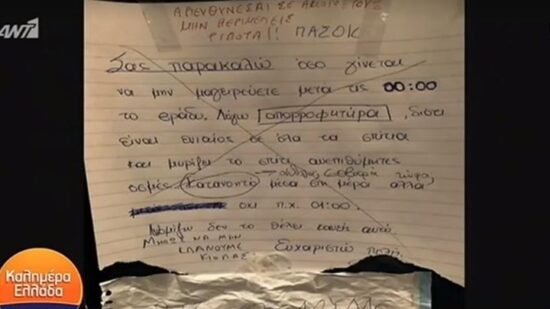 ΑΝΤ1
ΑΠΕΥΘΥΝΕΣΑΙ ΣΕ
ΜΗΝ ΠΕΡΙΜΕΝΕΙΣ
ΤΙΠΟΤΑ!! ΠΑΣΟΚ
Σας παρακαλώ όσο γίνεται
να μην μαγειρεύετε μετα τις 00:00
το βράδυ. Λόγω απορροφητήρα, διότι
είναι ενιαίος σε όλα τα σπίτια
και μυρίζει το σπίτι ανεπιθύμητες
οσμές. Κατανοητό μέσα στη μέρα αλλά,
όχι π.χ. 01:00.
Νομίζω δεν το θέλει κανείς αυτό.
ΜΗΠΩΣ ΝΑ ΜΗΝ
ΚΛΑΝΟΥΜΕ
ΚΙΟΛΑΣ
Ευχαριστώ
Καλημέρα
Ελλάδα